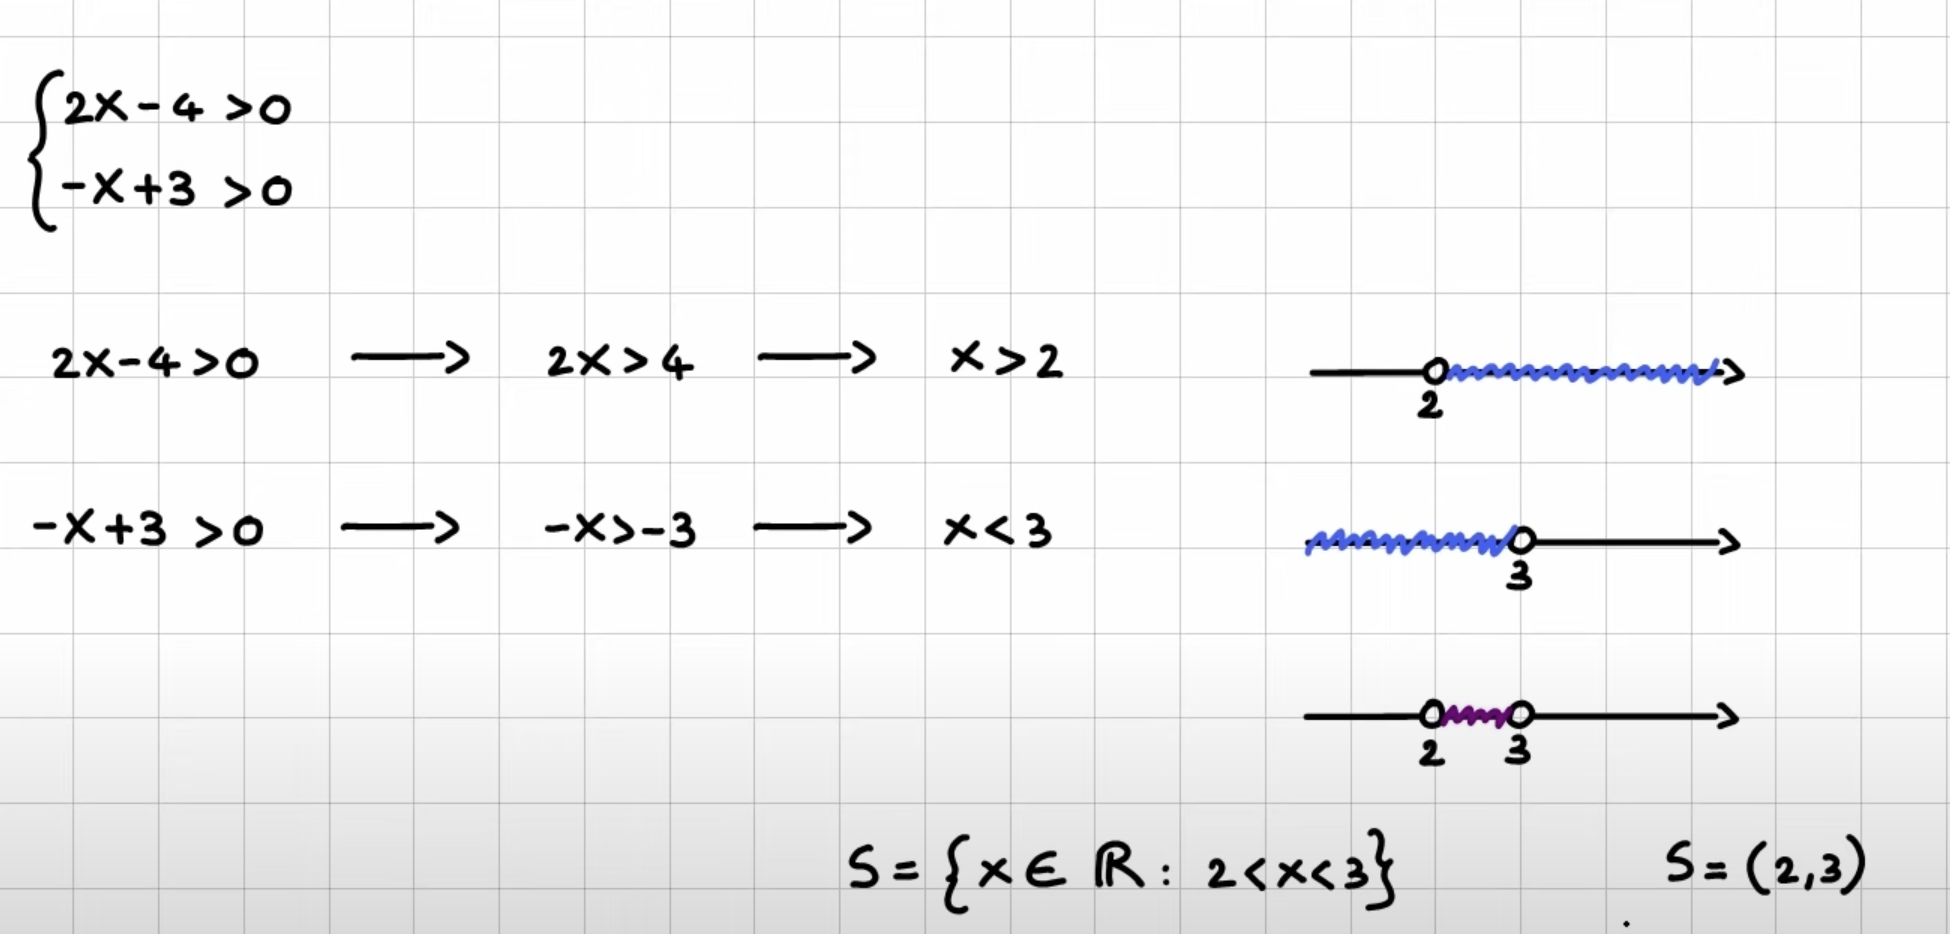 {2x-4 >0
-x+3 >0
2x-4>0 → 2x>4 → x>2
2
-x+3 >0 → -x>-3 → x<3
3
2 3
S={x∈ℝ: 2<x<3} S=(2,3)